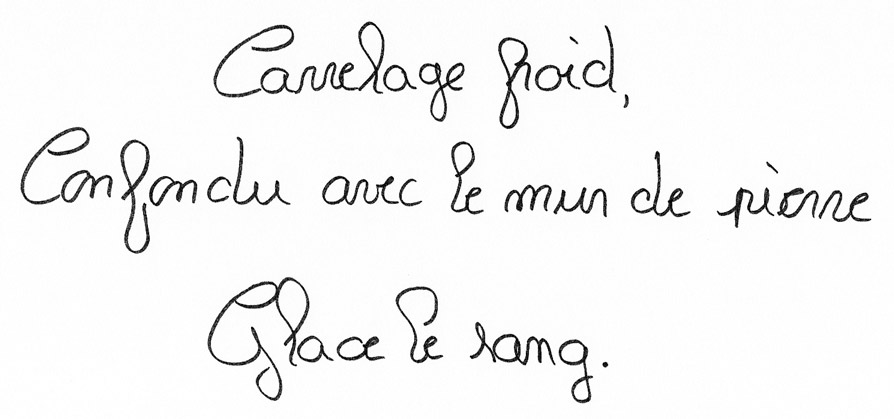 Carrelage froid,
Confondu avec le mur de pierre
Glace le sang.